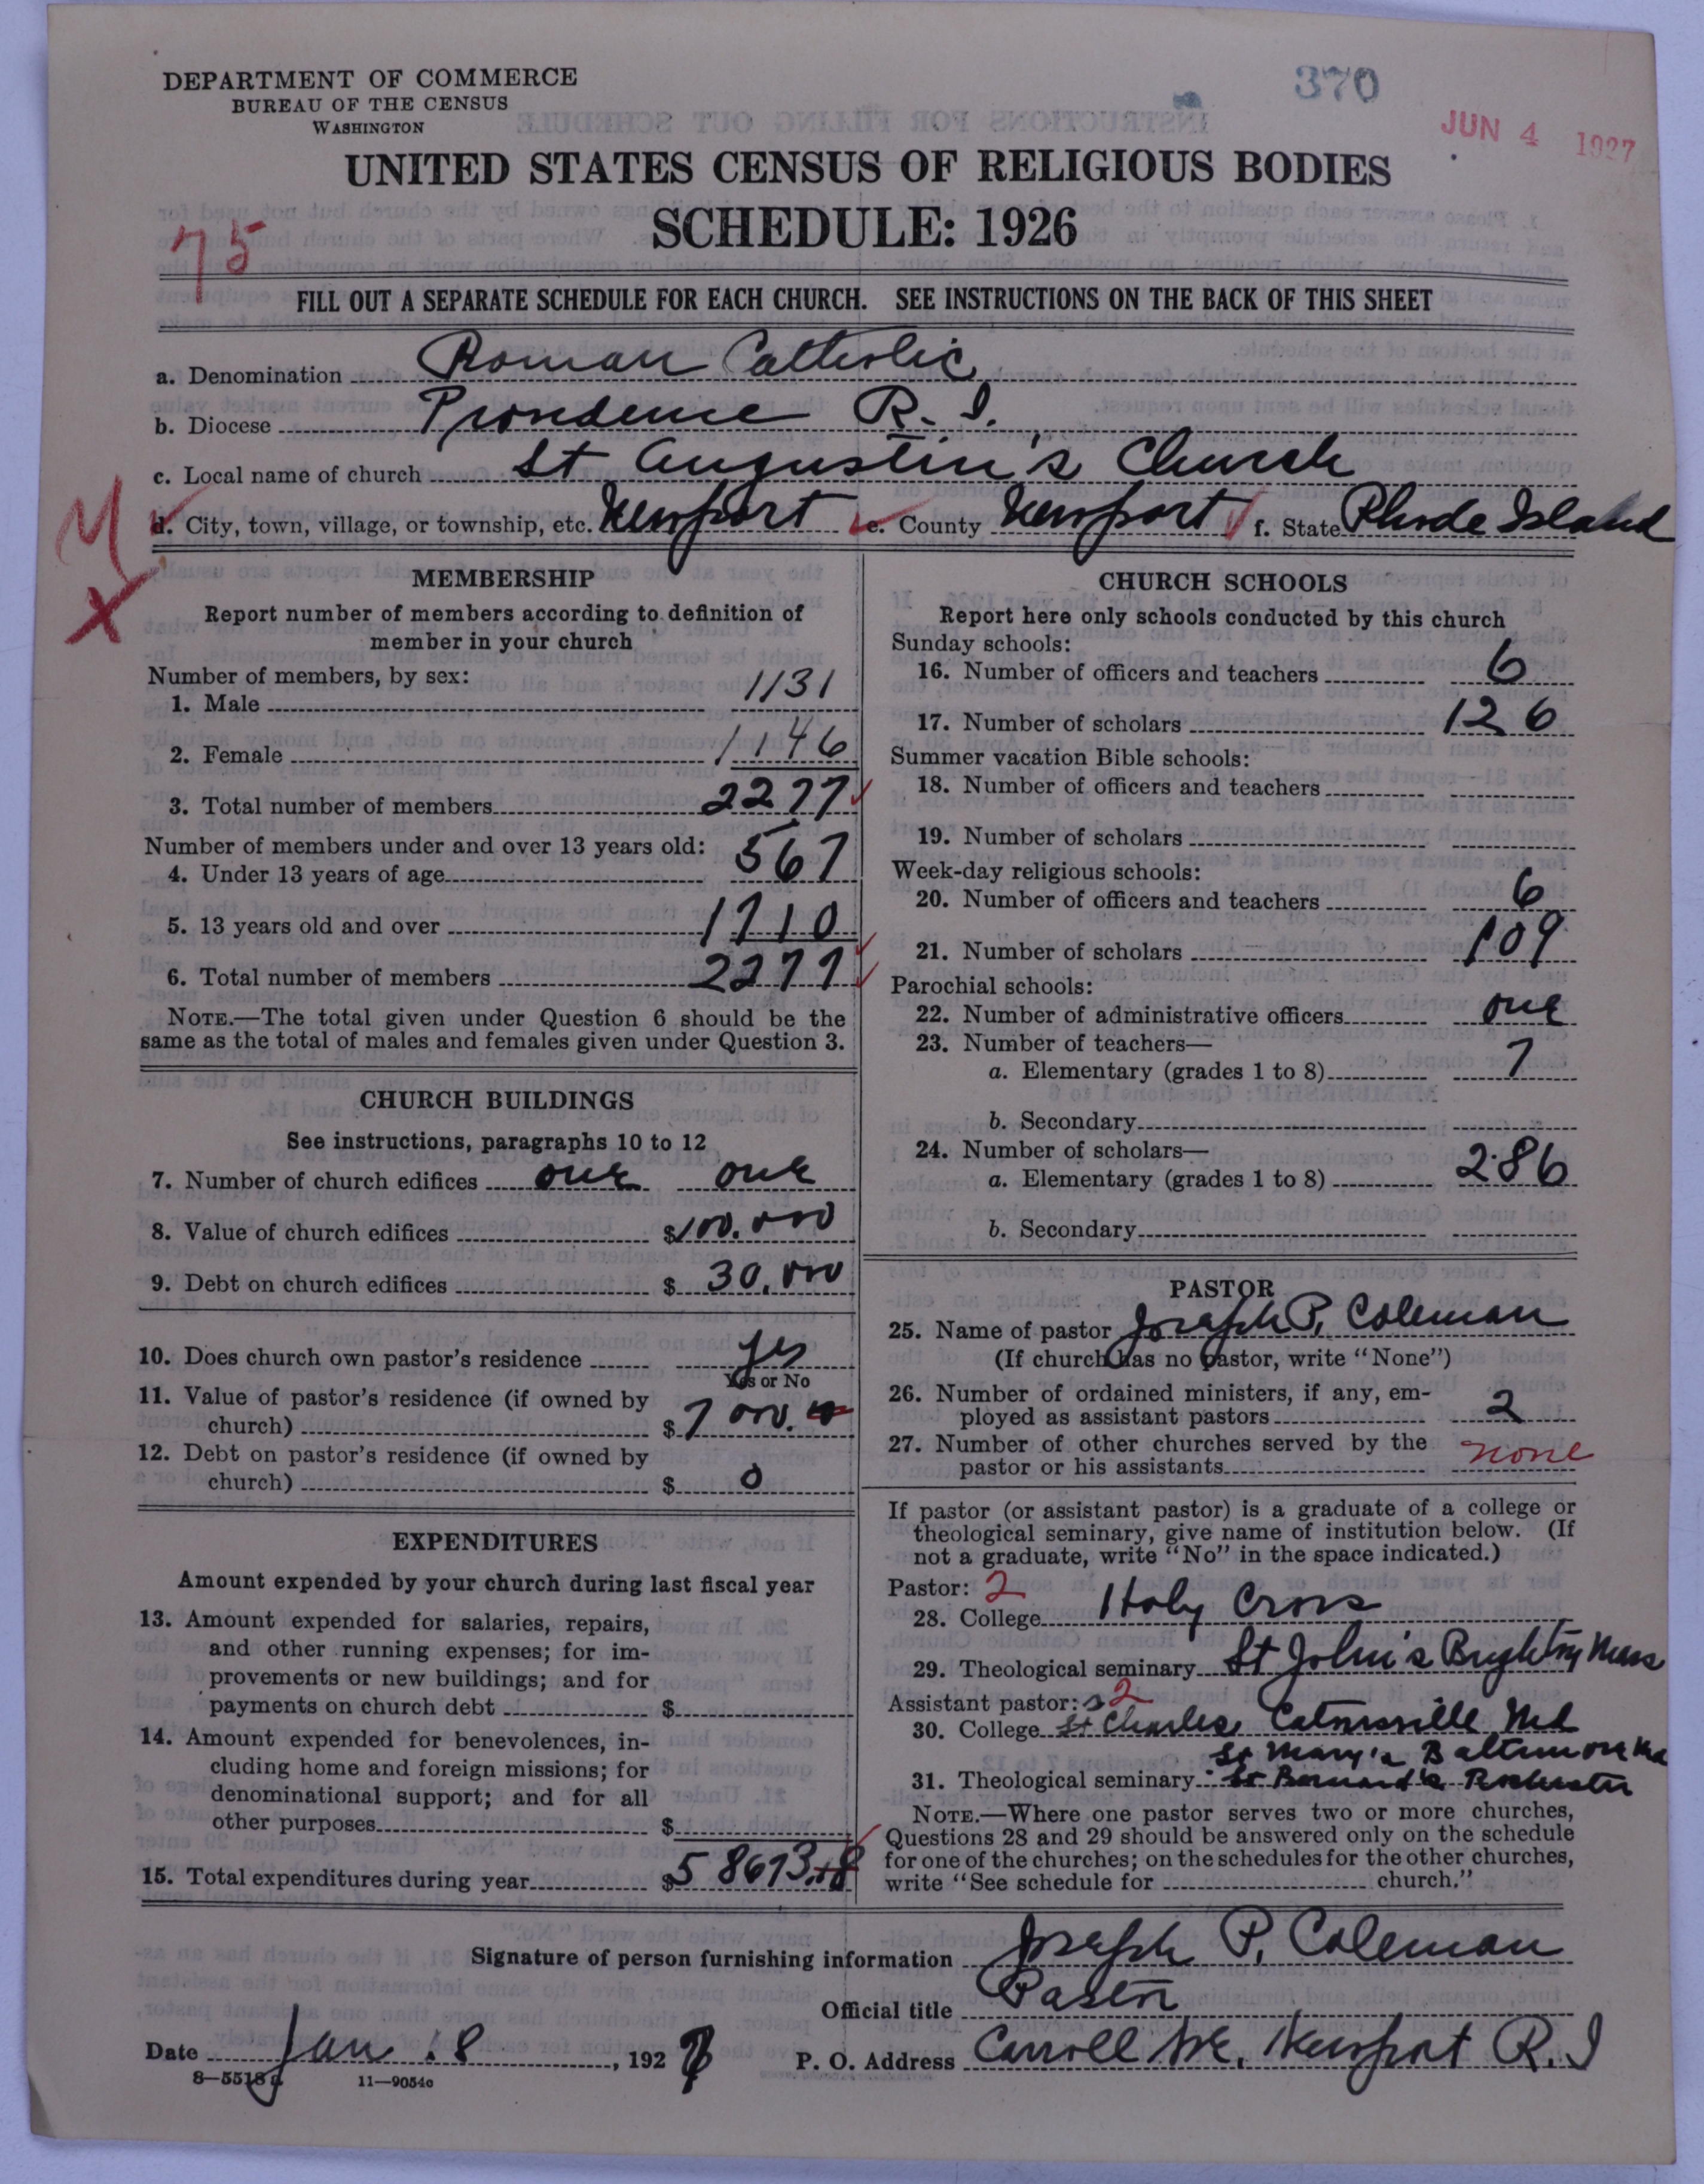 DEPARTMENT OF COMMERCE
BUREAU OF THE CENSUS
WASHINGTON
370
JUN 4 1927
UNITED STATES CENSUS OF RELIGIOUS BODIES
SCHEDULE: 1926
75
FILL OUT A SEPARATE SCHEDULE FOR EACH CHURCH. SEE INSTRUCTIONS ON THE BACK OF THIS SHEET
a. Denomination Roman Catholic
b. Diocese Providence R. I.
c. Local name of church St Augustin's Church
d. City, town, village, or township, etc. Newport e. County Newport f. State Rhode Island
X
MEMBERSHIP
Report number of members according to definition of
member in your church
Number of members, by sex:
1. Male 1131
2. Female 1146
3. Total number of members 2277
Number of members under and over 13 years old:
4. Under 13 years of age 567
5. 13 years old and over 1710
6. Total number of members 2277
NOTE.—The total given under Question 6 should be the
same as the total of males and females given under Question 3.
CHURCH BUILDINGS
See instructions, paragraphs 10 to 12
7. Number of church edifices one one
8. Value of church edifices $100.000
9. Debt on church edifices $ 30.000
10. Does church own pastor's residence yes
Yes or No
11. Value of pastor's residence (if owned by
church) $ 7 000.
12. Debt on pastor's residence (if owned by
church) $ 0
EXPENDITURES
Amount expended by your church during last fiscal year
13. Amount expended for salaries, repairs,
and other running expenses; for im-
provements or new buildings; and for
payments on church debt $
14. Amount expended for benevolences, in-
cluding home and foreign missions; for
denominational support; and for all
other purposes $
15. Total expenditures during year $58673.
CHURCH SCHOOLS
Report here only schools conducted by this church
Sunday schools:
16. Number of officers and teachers 6
17. Number of scholars 126
Summer vacation Bible schools:
18. Number of officers and teachers
19. Number of scholars
Week-day religious schools:
20. Number of officers and teachers 6
21. Number of scholars 109
Parochial schools:
22. Number of administrative officers one
23. Number of teachers—
a. Elementary (grades 1 to 8) 7
b. Secondary
24. Number of scholars—
a. Elementary (grades 1 to 8) 286
b. Secondary
PASTOR
25. Name of pastor Joseph P. Coleman
(If church has no pastor, write "None")
26. Number of ordained ministers, if any, em-
ployed as assistant pastors 2
27. Number of other churches served by the
pastor or his assistants none
If pastor (or assistant pastor) is a graduate of a college or
theological seminary, give name of institution below. (If
not a graduate, write "No" in the space indicated.)
Pastor: 2
28. College Holy Cross
29. Theological seminary St John's Brighton Mass
Assistant pastor: s 2
30. College St Charles Catonsville Md
St Mary's Baltimore Md
31. Theological seminary St Bernard's Rochester
NOTE.—Where one pastor serves two or more churches,
Questions 28 and 29 should be answered only on the schedule
for one of the churches; on the schedules for the other churches,
write "See schedule for church."
Signature of person furnishing information Joseph P. Coleman
Official title Pastor
Date Jan. 18, 1927 P. O. Address Carroll Ave. Newport R. I
8—5518 11—9054o